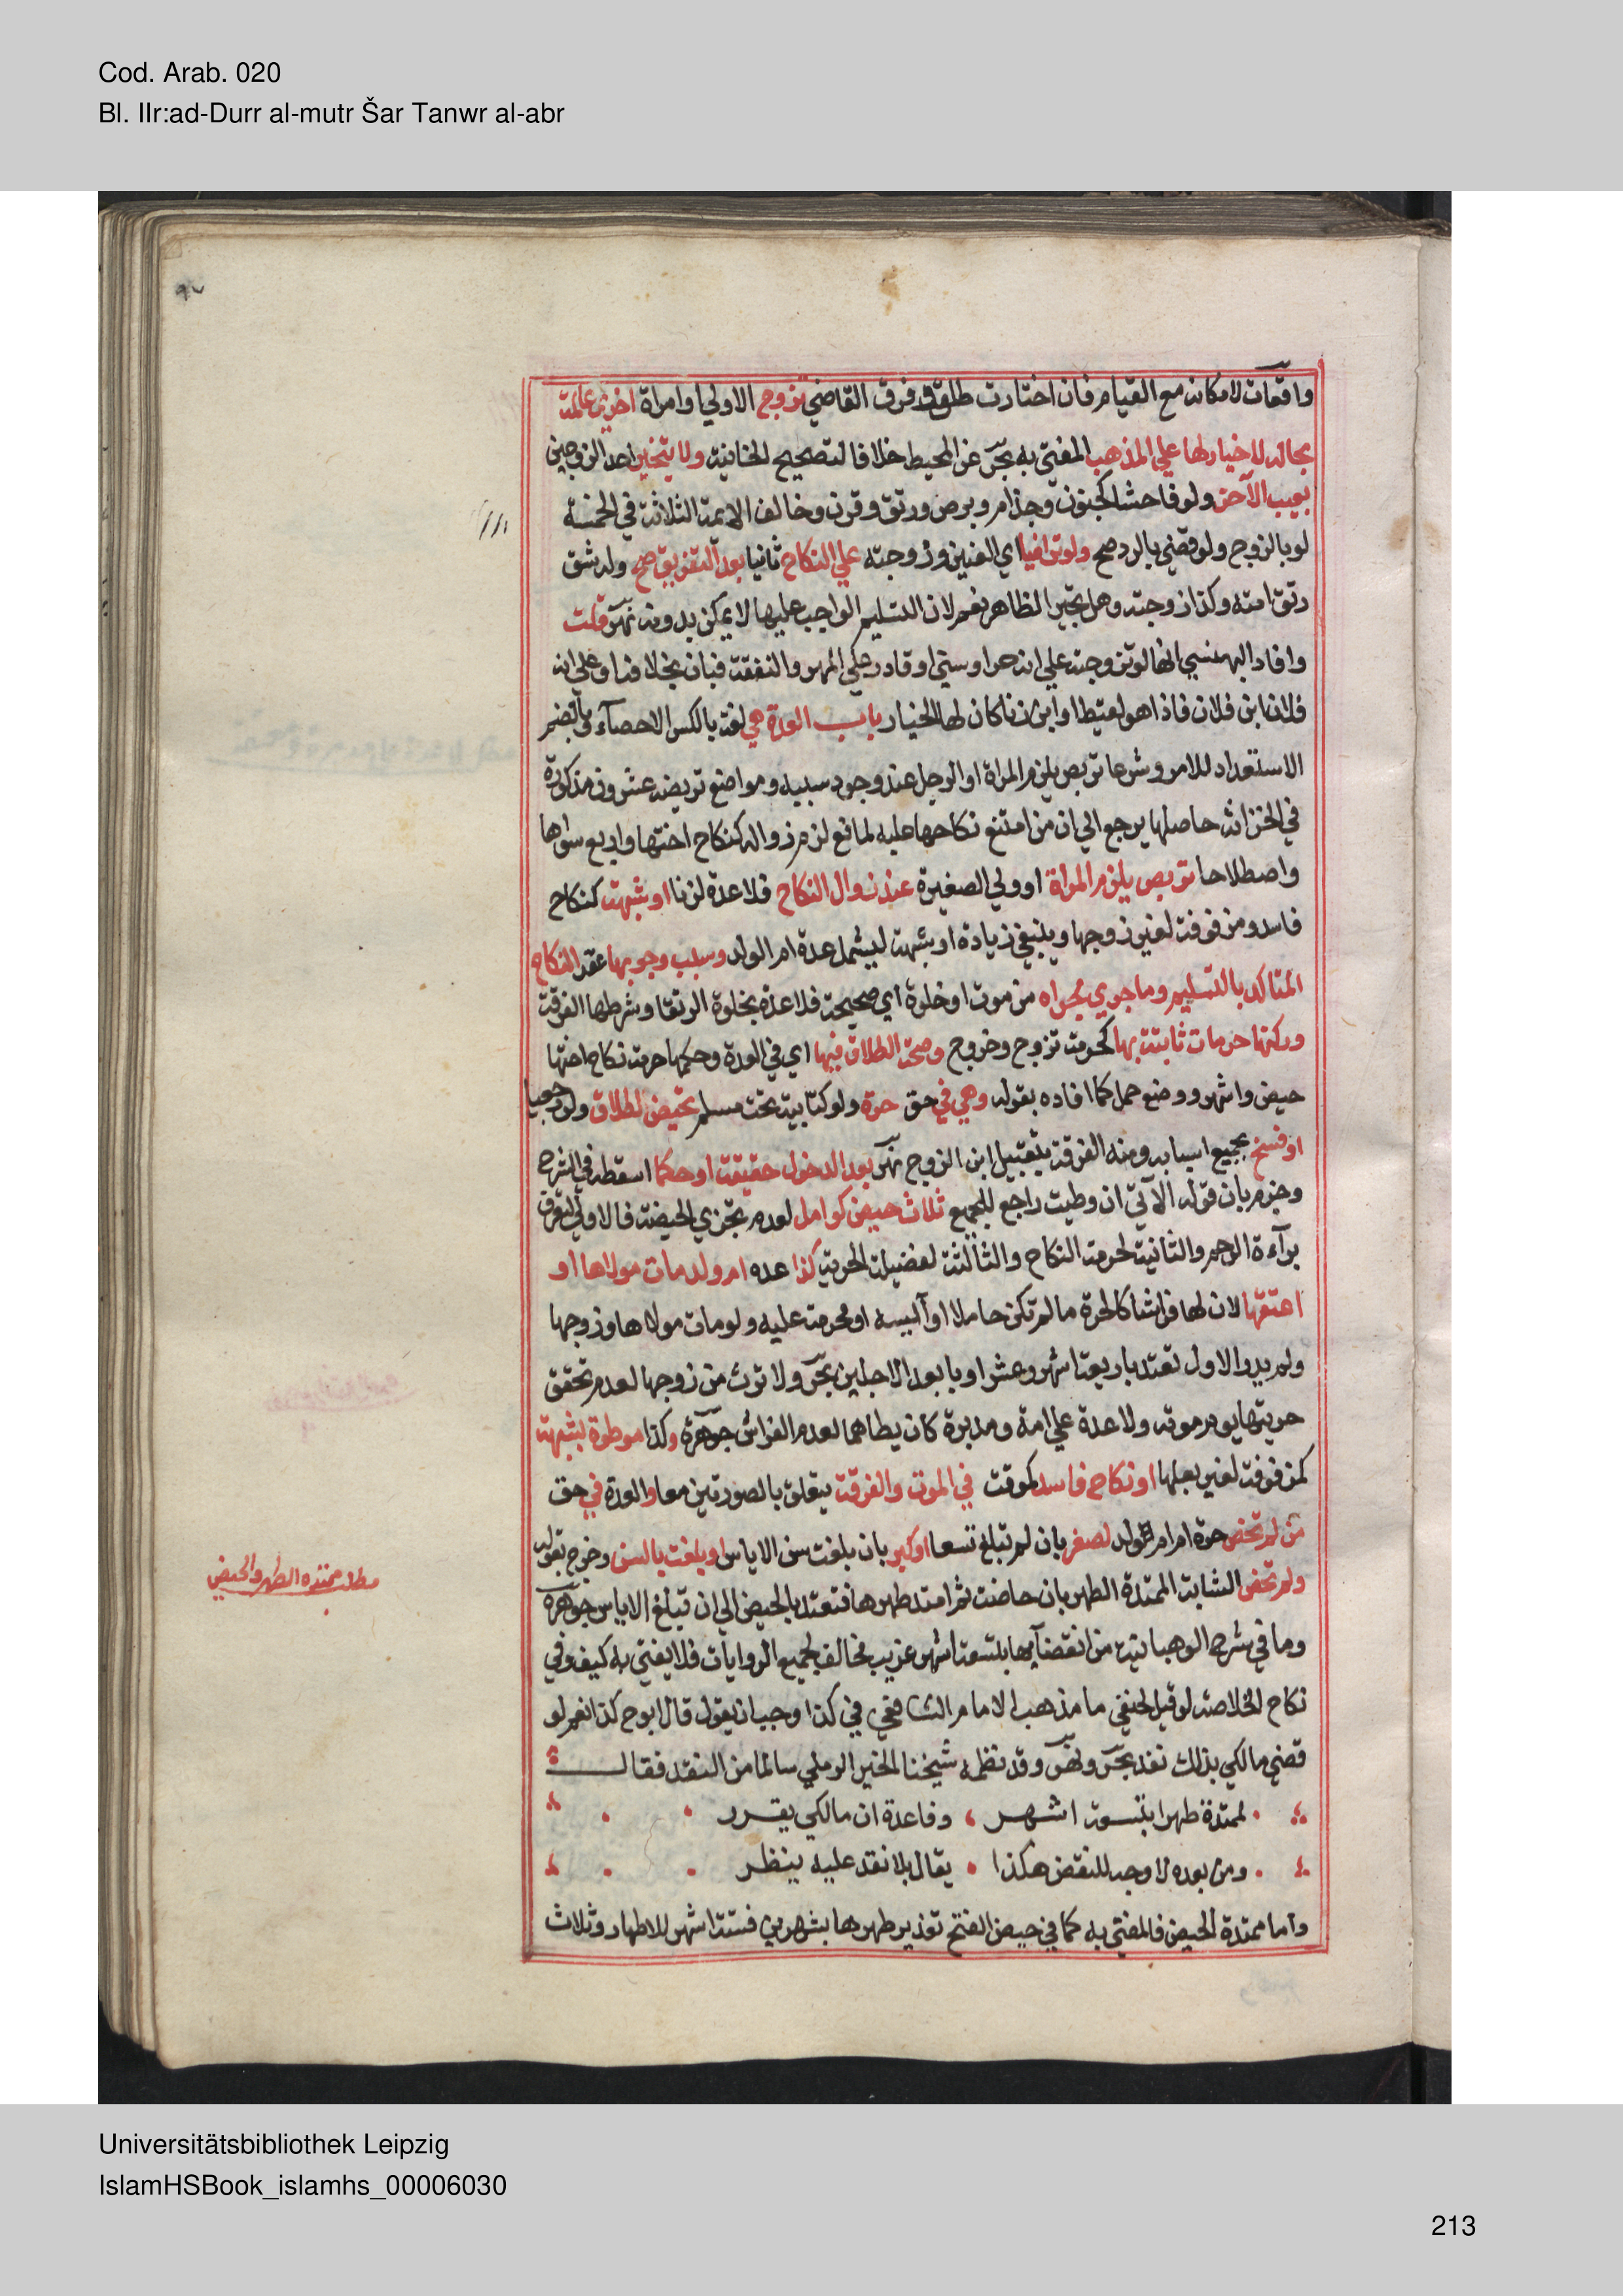 Cod. Arab. 020
Bl. IIr:ad-Durr al-mutr Šar Tanwr al-abr
٩٧
واقعات لامكانه مع القيام فان اختارت طلق او فرق القاضي تزوج الاولي او امراة اخري عالمة
بحاله لا خيار لها علي المذهب المفتي به بحر عن المحيط خلافا لتصحيح الخانية ولا يتخير احد الزوجين
بعيب الآخر ولو فاحشا كجنون وجذام وبرص ورتق وقرن وخالف الايمة الثلاثة في الخمسة
لو بالزوج ولو قضي بالرد صح ولو تراضيا اي العنين وزوجته علي النكاح ثانيا بعد التفريق صح وله شق
رتق امته وكذا زوجته وهل تجبر الظاهر نعم لان التسليم الواجب عليها لا يمكن بدونه نهر قلت
وافاد البهنسي انها لو تزوجته علي انه حر او سني او قادر علي المهر والنفقة فبان بخلافه او علي انه
فلان ابن فلان فاذا هو لقيط او ابن زنا كان لها الخيار باب العدة هي لغة بالكسر الاحصآء وبالضم
الاستعداد للامر وشرعا تربص يلزم المراة او الرجل عند وجود سببه ومواضع تربصه عشرون مذكورة
في الخزانة حاصلها يرجع الي ان من امتنع نكاحها عليه لمانع لزم زواله كنكاح اختها واربع سواها
واصطلاحا تربص يلزم المراة او ولي الصغيرة عند زوال النكاح فلا عدة لزنا او شبهة كنكاح
فاسد ومزفوفة لغير زوجها وينبغي زيادة او شبهه ليشمل عدة ام الولد وسبب وجوبها عقد النكاح
المتاكد بالتسليم وما جري مجراه من موت او خلوة اي صحيحة فلا عدة بخلوة الرتقا وشرطها الفرقة
وركنها حرمات ثابتة بها كحرمة تزوج وخروج وصحة الطلاق فيها اي في العدة وحكمها حرمة نكاح اختها
حيض واشهر ووضع حمل كما افاده بقوله وهي في حق حرة ولو كتابية تحت مسلم تحيض لطلاق ولو رجعيا
او فسخ بجميع اسبابه ومنه الفرقة بتقبيل ابن الزوج نهر بعد الدخول حقيقة او حكما اسقطه في الشرح
وجزم بان قوله الآتي ان وطيت راجع للجميع ثلاث حيض كوامل لعدم تجزي الحيضة فالاولي لتعرف
برآءة الرحم والثانية لحرمة النكاح والثالثة لفضيلة الحرية كذا عده ام ولد مات مولاها او
اعتقها لان لها فراشا كالحرة ما لم تكن حاملا او آيسة او محرمة عليه ولو مات مولاها وزوجها
ولم يدر الاول تعتد باربعة اشهر وعشر او بابعد الاجلين بحر ولا ترث من زوجها لعدم تحقق
حريتها يوم موته ولا عدة علي امة ومدبرة كان يطاهما لعدم الفراش جوهرة وكذا موطوة بشبهة
كمزفوفة لغير بعلها او نكاح فاسد كموقت في الموت والفرقة يتعلق بالصورتين معا والعدة في حق
من لم تحض حرة ام ام ولد لصغر بان لم تبلغ تسعا او كبر بان بلغت سن الاياس او بلغت بالسن وخرج بقوله
ولم تحض الشابة الممتدة الطهر بان حاضت ثم امتد طهرها فتعتد بالحيض الي ان تبلغ الاياس جوهرة
وما في شرح الوهبانية من انقضآيها بتسعة اشهر غريب مخالف لجميع الروايات فلا يفتي به كيف وفي
نكاح الخلاصة لو قيل لحنفي ما مذهب الامام الشافعي في كذا وجب ان يقول قال ابو ح كذا نعم لو
قضي مالكي بذلك نفذ بحر ونهر وقد نظمه شيخنا الخير الرملي سالما من النقد فقال
لممتدة طهرا بتسعة اشهر ، وفا عدة ان مالكي يقرر
ومن بعده لا وجه للنقض هكذا ، يقال بلا نقد عليه ينظر
واما ممتدة الحيض فالمفتي به كما في حيض الفتح تقدير طهرها بشهرين فستة اشهر للاطهار وثلاث
مطلب ممتده الطهر والحيض
Universitätsbibliothek Leipzig
IslamHSBook_islamhs_00006030
213